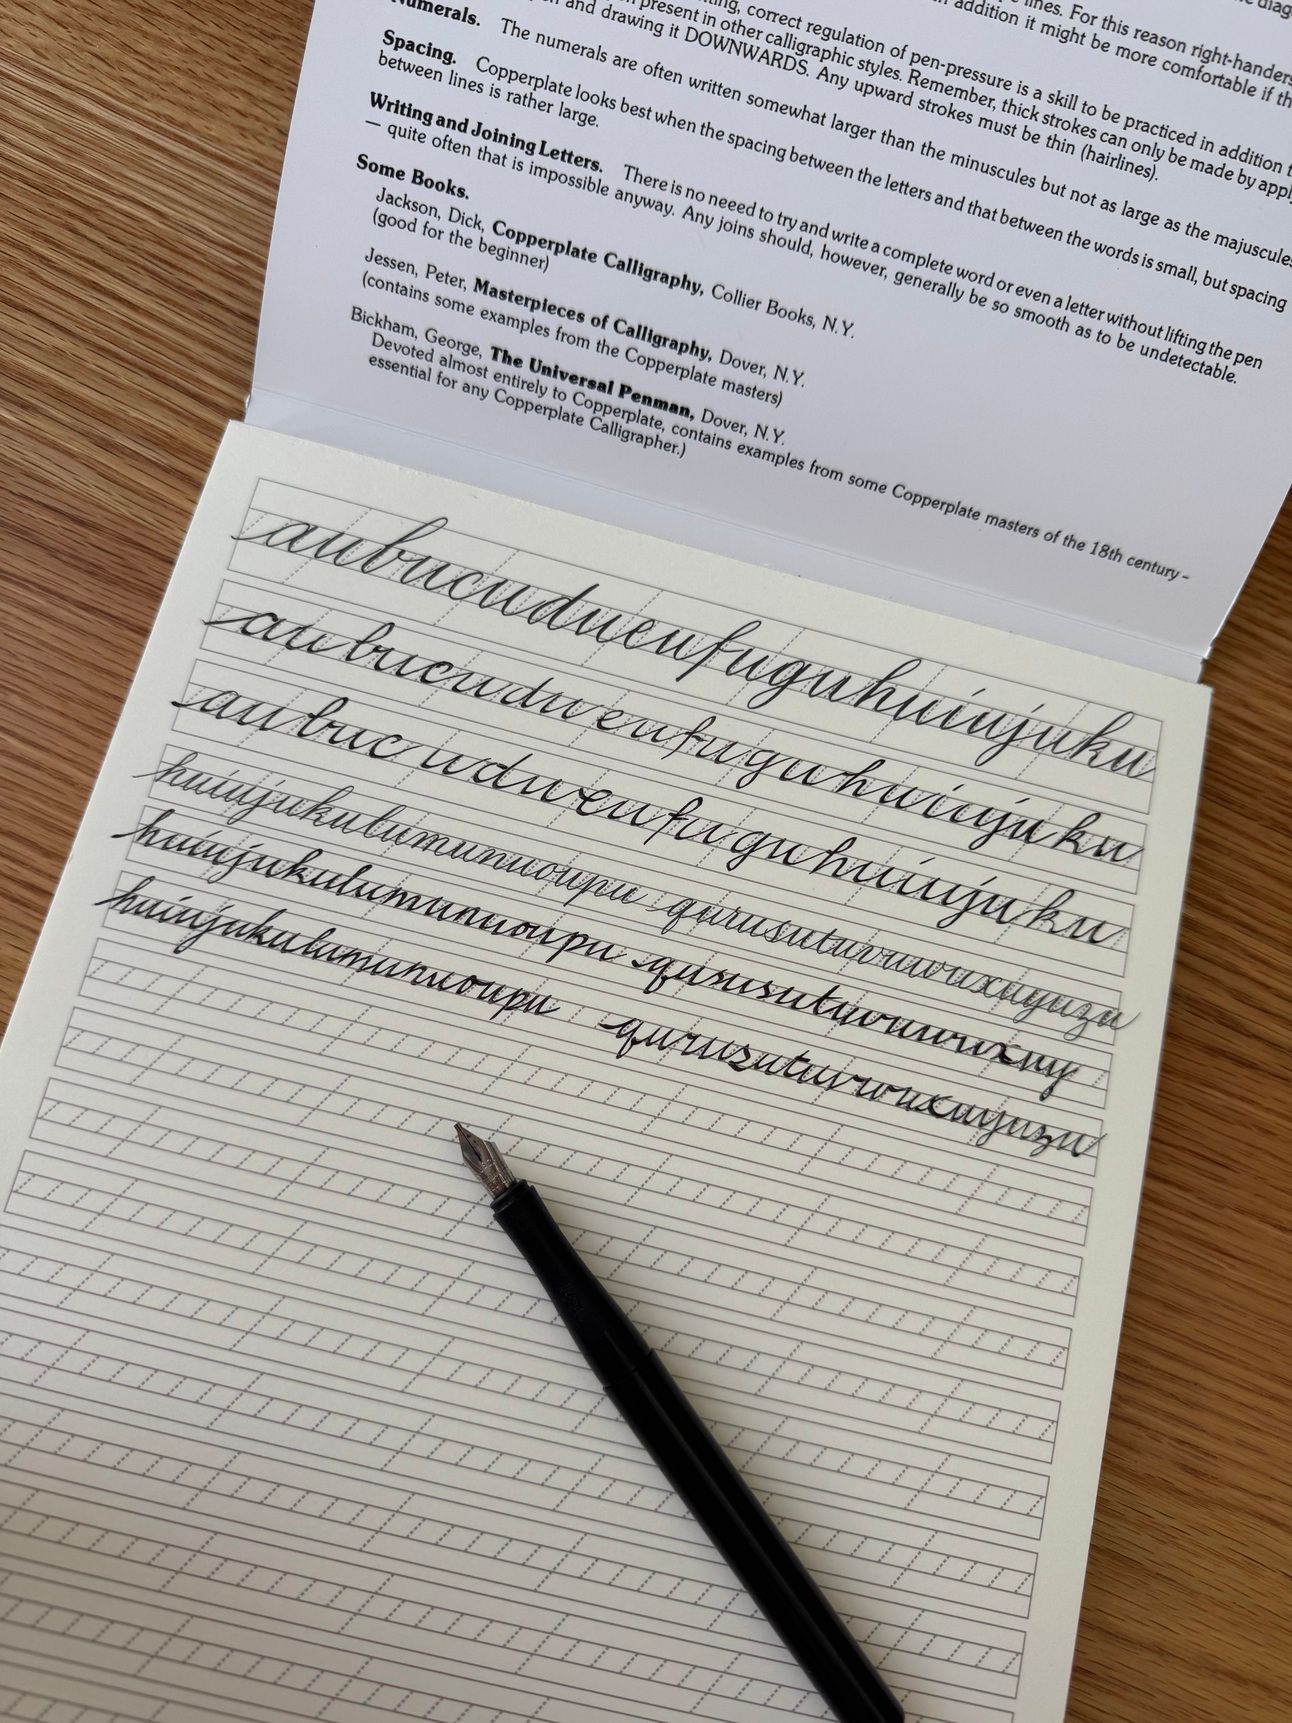 lines. For this reason right-handers
correct regulation of pen-pressure is a skill to be practiced in addition
addition it might be more comfortable if
present in other calligraphic styles. Remember, thick strokes can only be made by
and drawing it DOWNWARDS. Any upward strokes must be thin (hairlines).
Numerals. The numerals are often written somewhat larger than the minuscules but not as large as the majuscules
Spacing. Copperplate looks best when the spacing between the letters and that between the words is small, but spacing
between lines is rather large.
Writing and Joining Letters. There is no neeed to try and write a complete word or even a letter without lifting the pen
— quite often that is impossible anyway. Any joins should, however, generally be so smooth as to be undetectable.
Some Books.
Jackson, Dick, Copperplate Calligraphy, Collier Books, N.Y.
(good for the beginner)
Jessen, Peter, Masterpieces of Calligraphy, Dover, N.Y.
(contains some examples from the Copperplate masters)
Bickham, George, The Universal Penman, Dover, N.Y.
Devoted almost entirely to Copperplate, contains examples from some Copperplate masters of the 18th century -
essential for any Copperplate Calligrapher.)
aubucudueufuguhuiujuku
aubucudueufuguhuiujuku
aubuc udueufuguhuiujuku
huiujukulumunuoupu qurusutuvuwuxuyuzu
huiujukulumunuoupu qususutuvuwuxuy
huiujukulumunuoupu quruzutuvuwuxuyuzu